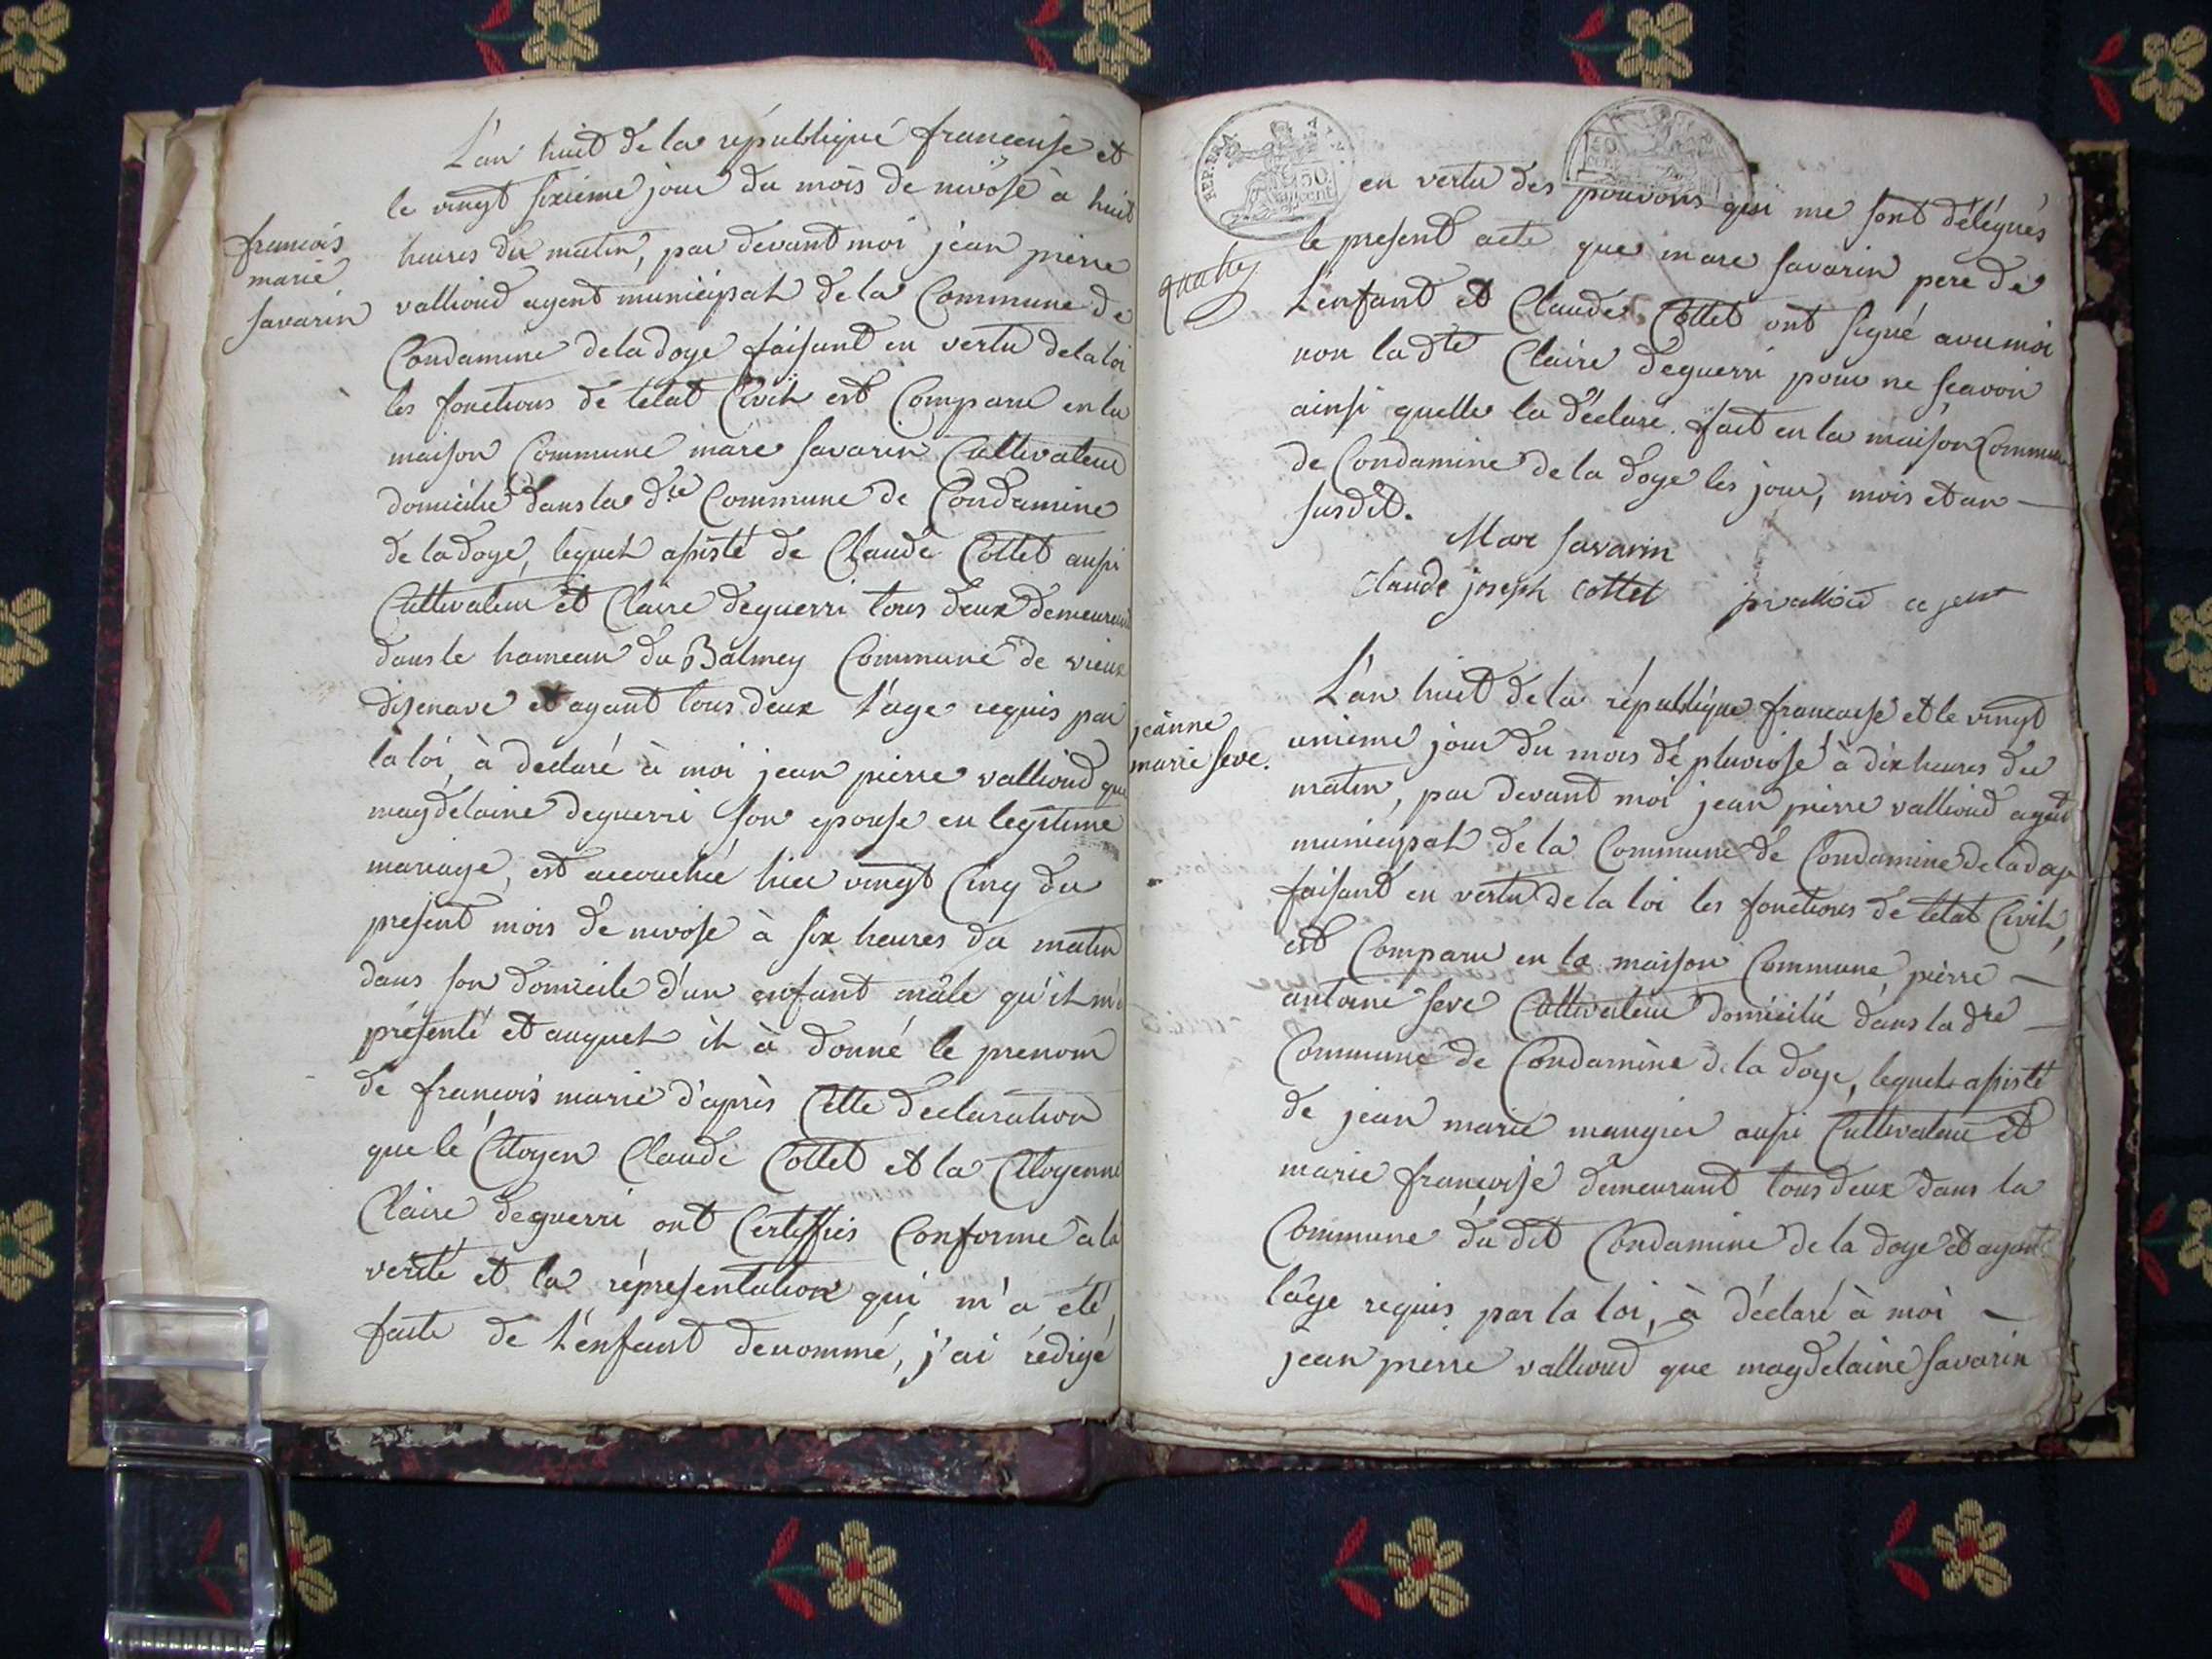 L'an huit de la république francaise et
le vingt sixième jour du mois de nivôse à huit
heures du matin, par devant moi jean pierre
francois
marie
savarin
vallioud agent municipal de la Commune de
Condamine de la doye faisant en vertu de la loi
les fonctions de letat Civil est Comparu en la
maison Commune marc savarin Cultivateur
domicilié dans la dte Commune de Condamine
de la doye, lequel assisté de Claude Cottet aussi
Cultivateur et Claire deguerri tous deux demeurant
dans le hameau du Balmey Commune de vieux
disenave et ayant tous deux l'age requis par
la loi, à declaré à moi jean pierre vallioud que
magdelaine deguerri son epouse en legitime
mariage, est accouchée hier vingt Cinq du
present mois de nivose à six heures du matin
dans son domicile d'un enfant mâle qu'il m'a
présenté et auquel il à donné le prenom
de francois marie d'après Cette declaration
que le Citoyen Claude Cottet et la Citoyenne
Claire deguerri ont Certiffiés Conforme à la
verité et la répresentation qui m'a eté
faite de l'enfant denommé, j'ai rédigé
REP. FRA.
50
cent
en vertu des pouvoirs qui me sont délégués
le present acte que marc savarin pere de
quatre
L'enfant et Claude Cottet ont signé avec moi
non la dte Claire deguerri pour ne scavoir
ainsi quelle la déclaré. fait en la maison Commune
de Condamine de la doye les jour, mois et an
susdit.
Marc Savarin
Claude joseph Cottet jp vallioud agent
L'an huit de la république francaise et le vingt
jeanne
marie seve.
unieme jour du mois de pluviose à dix heures du
matin, par devant moi jean pierre vallioud agent
municipal de la Commune de Condamine de la doye
faisant en vertu de la loi les fonctions de letat Civil,
est Comparu en la maison Commune, pierre
antoine seve Cultivateur domicilié dans la dte
Commune de Condamine de la doye, lequel assisté
de jean marie maugier aussi Cultivateur et
marie francoise demeurant tous deux dans la
Commune du dit Condamine de la doye et ayant
lâge requis par la loi, à déclaré à moi
jean pierre vallioud que magdelaine savarin